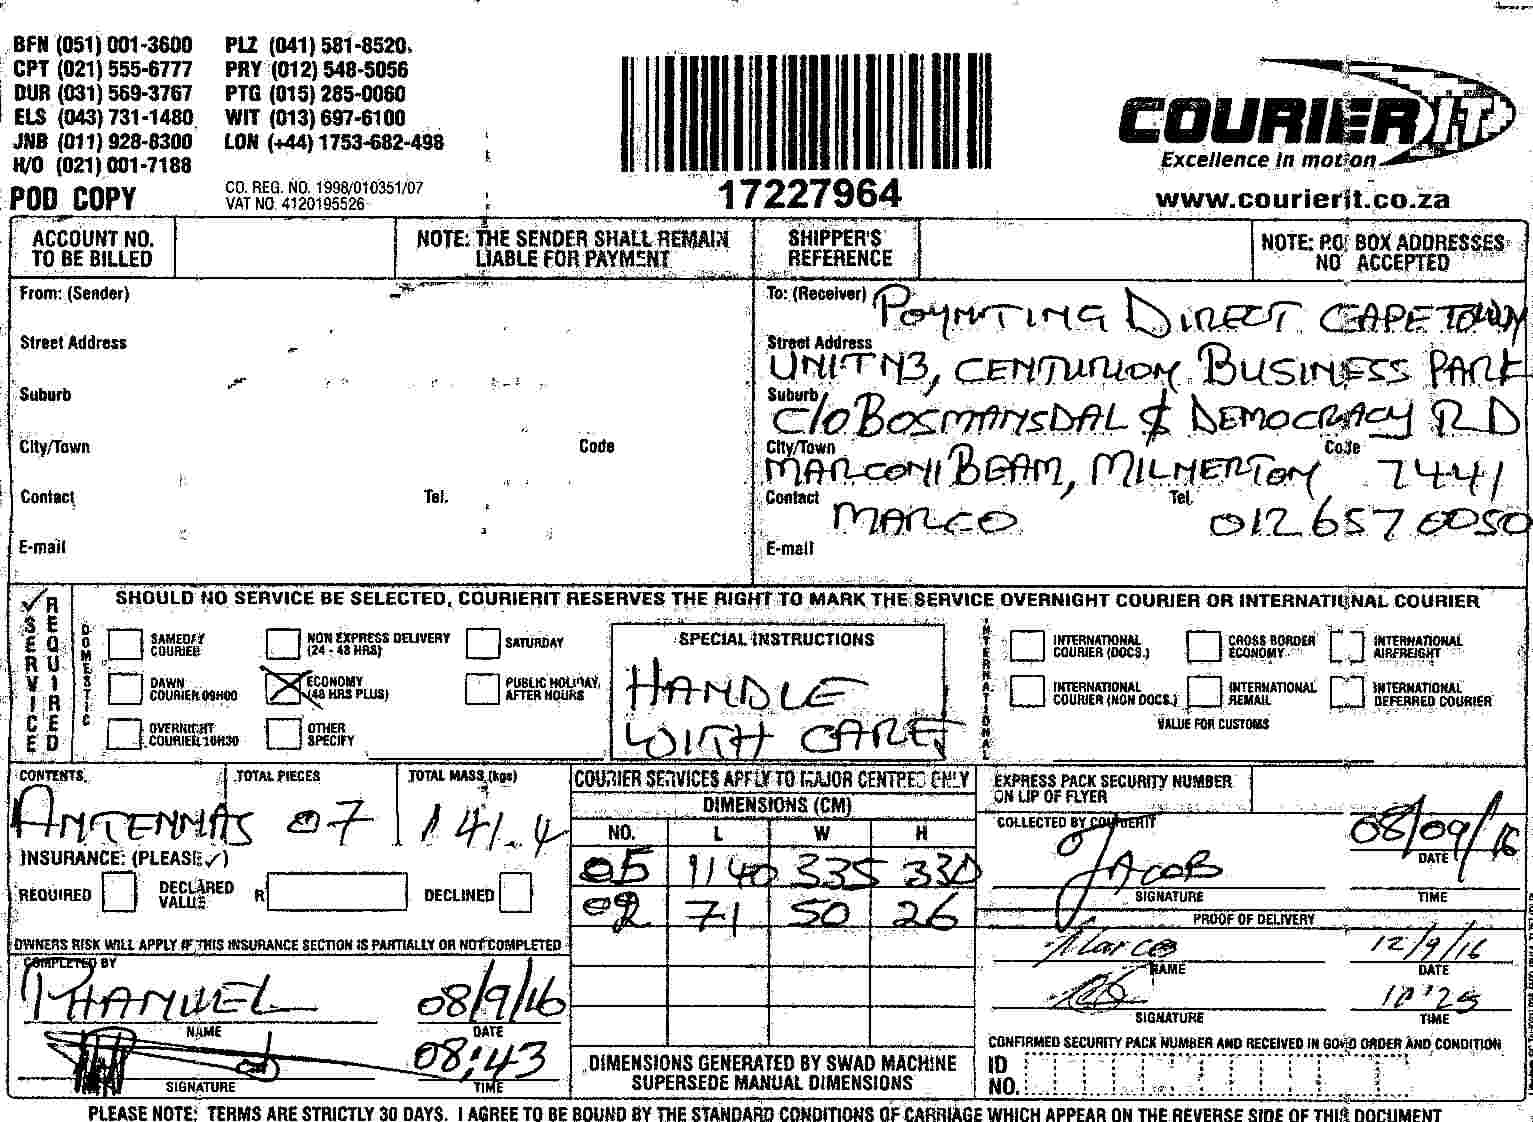 BFN (051) 001-3600 PLZ (041) 581-8520
CPT (021) 555-6777 PRY (012) 548-5056
DUR (031) 569-3767 PTG (015) 285-0060
ELS (043) 731-1480 WIT (013) 697-6100
JNB (011) 928-8300 LON (+44) 1753-682-498
H/O (021) 001-7188
POD COPY
CO. REG. NO. 1998/010351/07
VAT NO. 4120195526
17227964
COURIER IT
Excellence in motion
www.courierit.co.za
ACCOUNT NO. TO BE BILLED
NOTE: THE SENDER SHALL REMAIN LIABLE FOR PAYMENT
SHIPPER'S REFERENCE
NOTE: P.O. BOX ADDRESSES NO ACCEPTED
From: (Sender)
Street Address
Suburb
City/Town Code
Contact Tel.
E-mail
To: (Receiver) POYNTING DIRECT CAPE TOWN
Street Address UNIT N3, CENTURION BUSINESS PARK
Suburb C/O BOSMANSDAL & DEMOCRACY RD
City/Town MARCONI BEAM, MILNERTON Code 7441
Contact MARCO Tel. 012 657 0050
E-mail
✓ SERVICE REQUIRED
SHOULD NO SERVICE BE SELECTED, COURIERIT RESERVES THE RIGHT TO MARK THE SERVICE OVERNIGHT COURIER OR INTERNATIONAL COURIER
DOMESTIC
SAMEDAY COURIER
NON EXPRESS DELIVERY (24 - 48 HRS)
SATURDAY
DAWN COURIER 09H00
ECONOMY (48 HRS PLUS)
PUBLIC HOLIDAY, AFTER HOURS
OVERNIGHT COURIER 10H30
OTHER SPECIFY
SPECIAL INSTRUCTIONS
HANDLE
WITH CARE
INTERNATIONAL
INTERNATIONAL COURIER (DOCS.)
CROSS BORDER ECONOMY
INTERNATIONAL AIRFREIGHT
INTERNATIONAL COURIER (NON DOCS.)
INTERNATIONAL REMAIL
INTERNATIONAL DEFERRED COURIER
VALUE FOR CUSTOMS
CONTENTS TOTAL PIECES TOTAL MASS (kgs)
ANTENNAS 07 141.4
INSURANCE: (PLEASE ✓)
REQUIRED DECLARED VALUE R DECLINED
OWNERS RISK WILL APPLY IF THIS INSURANCE SECTION IS PARTIALLY OR NOT COMPLETED
COMPLETED BY
08/9/16
NAME DATE
08:43
SIGNATURE TIME
COURIER SERVICES APPLY TO MAJOR CENTRES ONLY
DIMENSIONS (CM)
NO. L W H
05 1140 335 330
02 71 50 26
DIMENSIONS GENERATED BY SWAD MACHINE
SUPERSEDE MANUAL DIMENSIONS
EXPRESS PACK SECURITY NUMBER
ON LIP OF FLYER
COLLECTED BY COURIERIT
JACOB 08/09/16
DATE
SIGNATURE TIME
PROOF OF DELIVERY
Marco 12/9/16
NAME DATE
SIGNATURE TIME
CONFIRMED SECURITY PACK NUMBER AND RECEIVED IN GOOD ORDER AND CONDITION
ID NO.
PLEASE NOTE: TERMS ARE STRICTLY 30 DAYS. I AGREE TO BE BOUND BY THE STANDARD CONDITIONS OF CARRIAGE WHICH APPEAR ON THE REVERSE SIDE OF THIS DOCUMENT